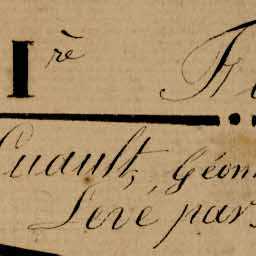 Ire Fe
Cuault, Géom
Levé par